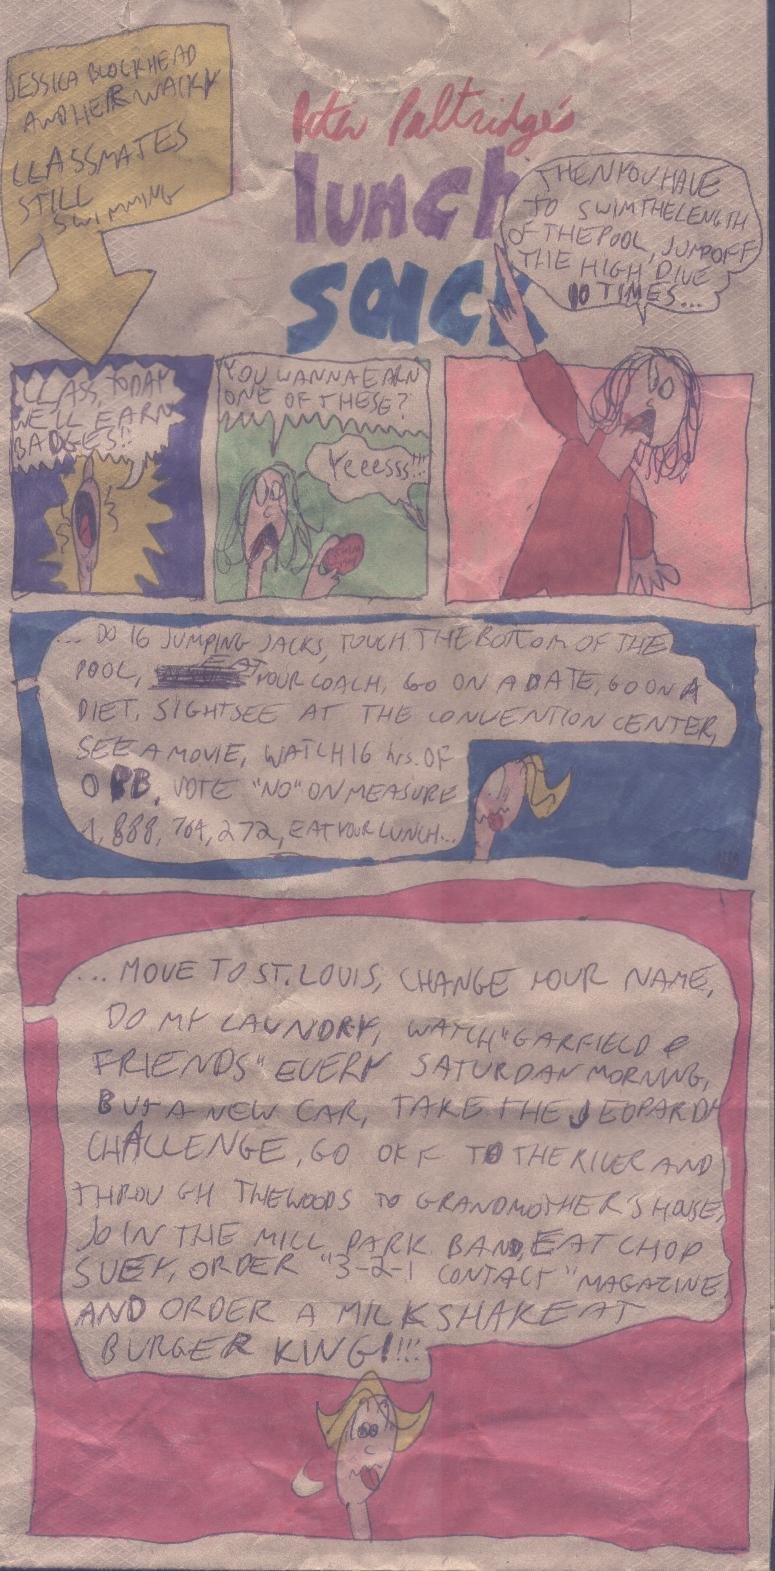 JESSICA BLOCKHEAD
AND HER WACKY
CLASSMATES
STILL
SWIMMING
Peter Paltridge's
lunch
sack
THEN YOU HAVE
TO SWIM THE LENGTH
OF THE POOL, JUMP OFF
THE HIGH DIVE
10 TIMES...
CLASS, TODAY
WE'LL EARN
BADGES!!
YOU WANNA EARN
ONE OF THESE?
Yeeesss!!!
SWIM
... DO 16 JUMPING JACKS, TOUCH THE BOTTOM OF THE
POOL, EAT YOUR COACH, GO ON A DATE, GO ON A
DIET, SIGHTSEE AT THE CONVENTION CENTER,
SEE A MOVIE, WATCH 16 hrs. OF
OPB, VOTE "NO" ON MEASURE
1,888,764,272, EAT YOUR LUNCH...
... MOVE TO ST. LOUIS, CHANGE YOUR NAME,
DO MY LAUNDRY, WATCH "GARFIELD &
FRIENDS" EVERY SATURDAY MORNING,
BUY A NEW CAR, TAKE THE JEOPARDY
CHALLENGE, GO OFF TO THE RIVER AND
THROUGH THE WOODS TO GRANDMOTHER'S HOUSE,
JOIN THE MILL PARK BAND, EAT CHOP
SUEY, ORDER "3-2-1 CONTACT" MAGAZINE,
AND ORDER A MILKSHAKE AT
BURGER KING!!!!